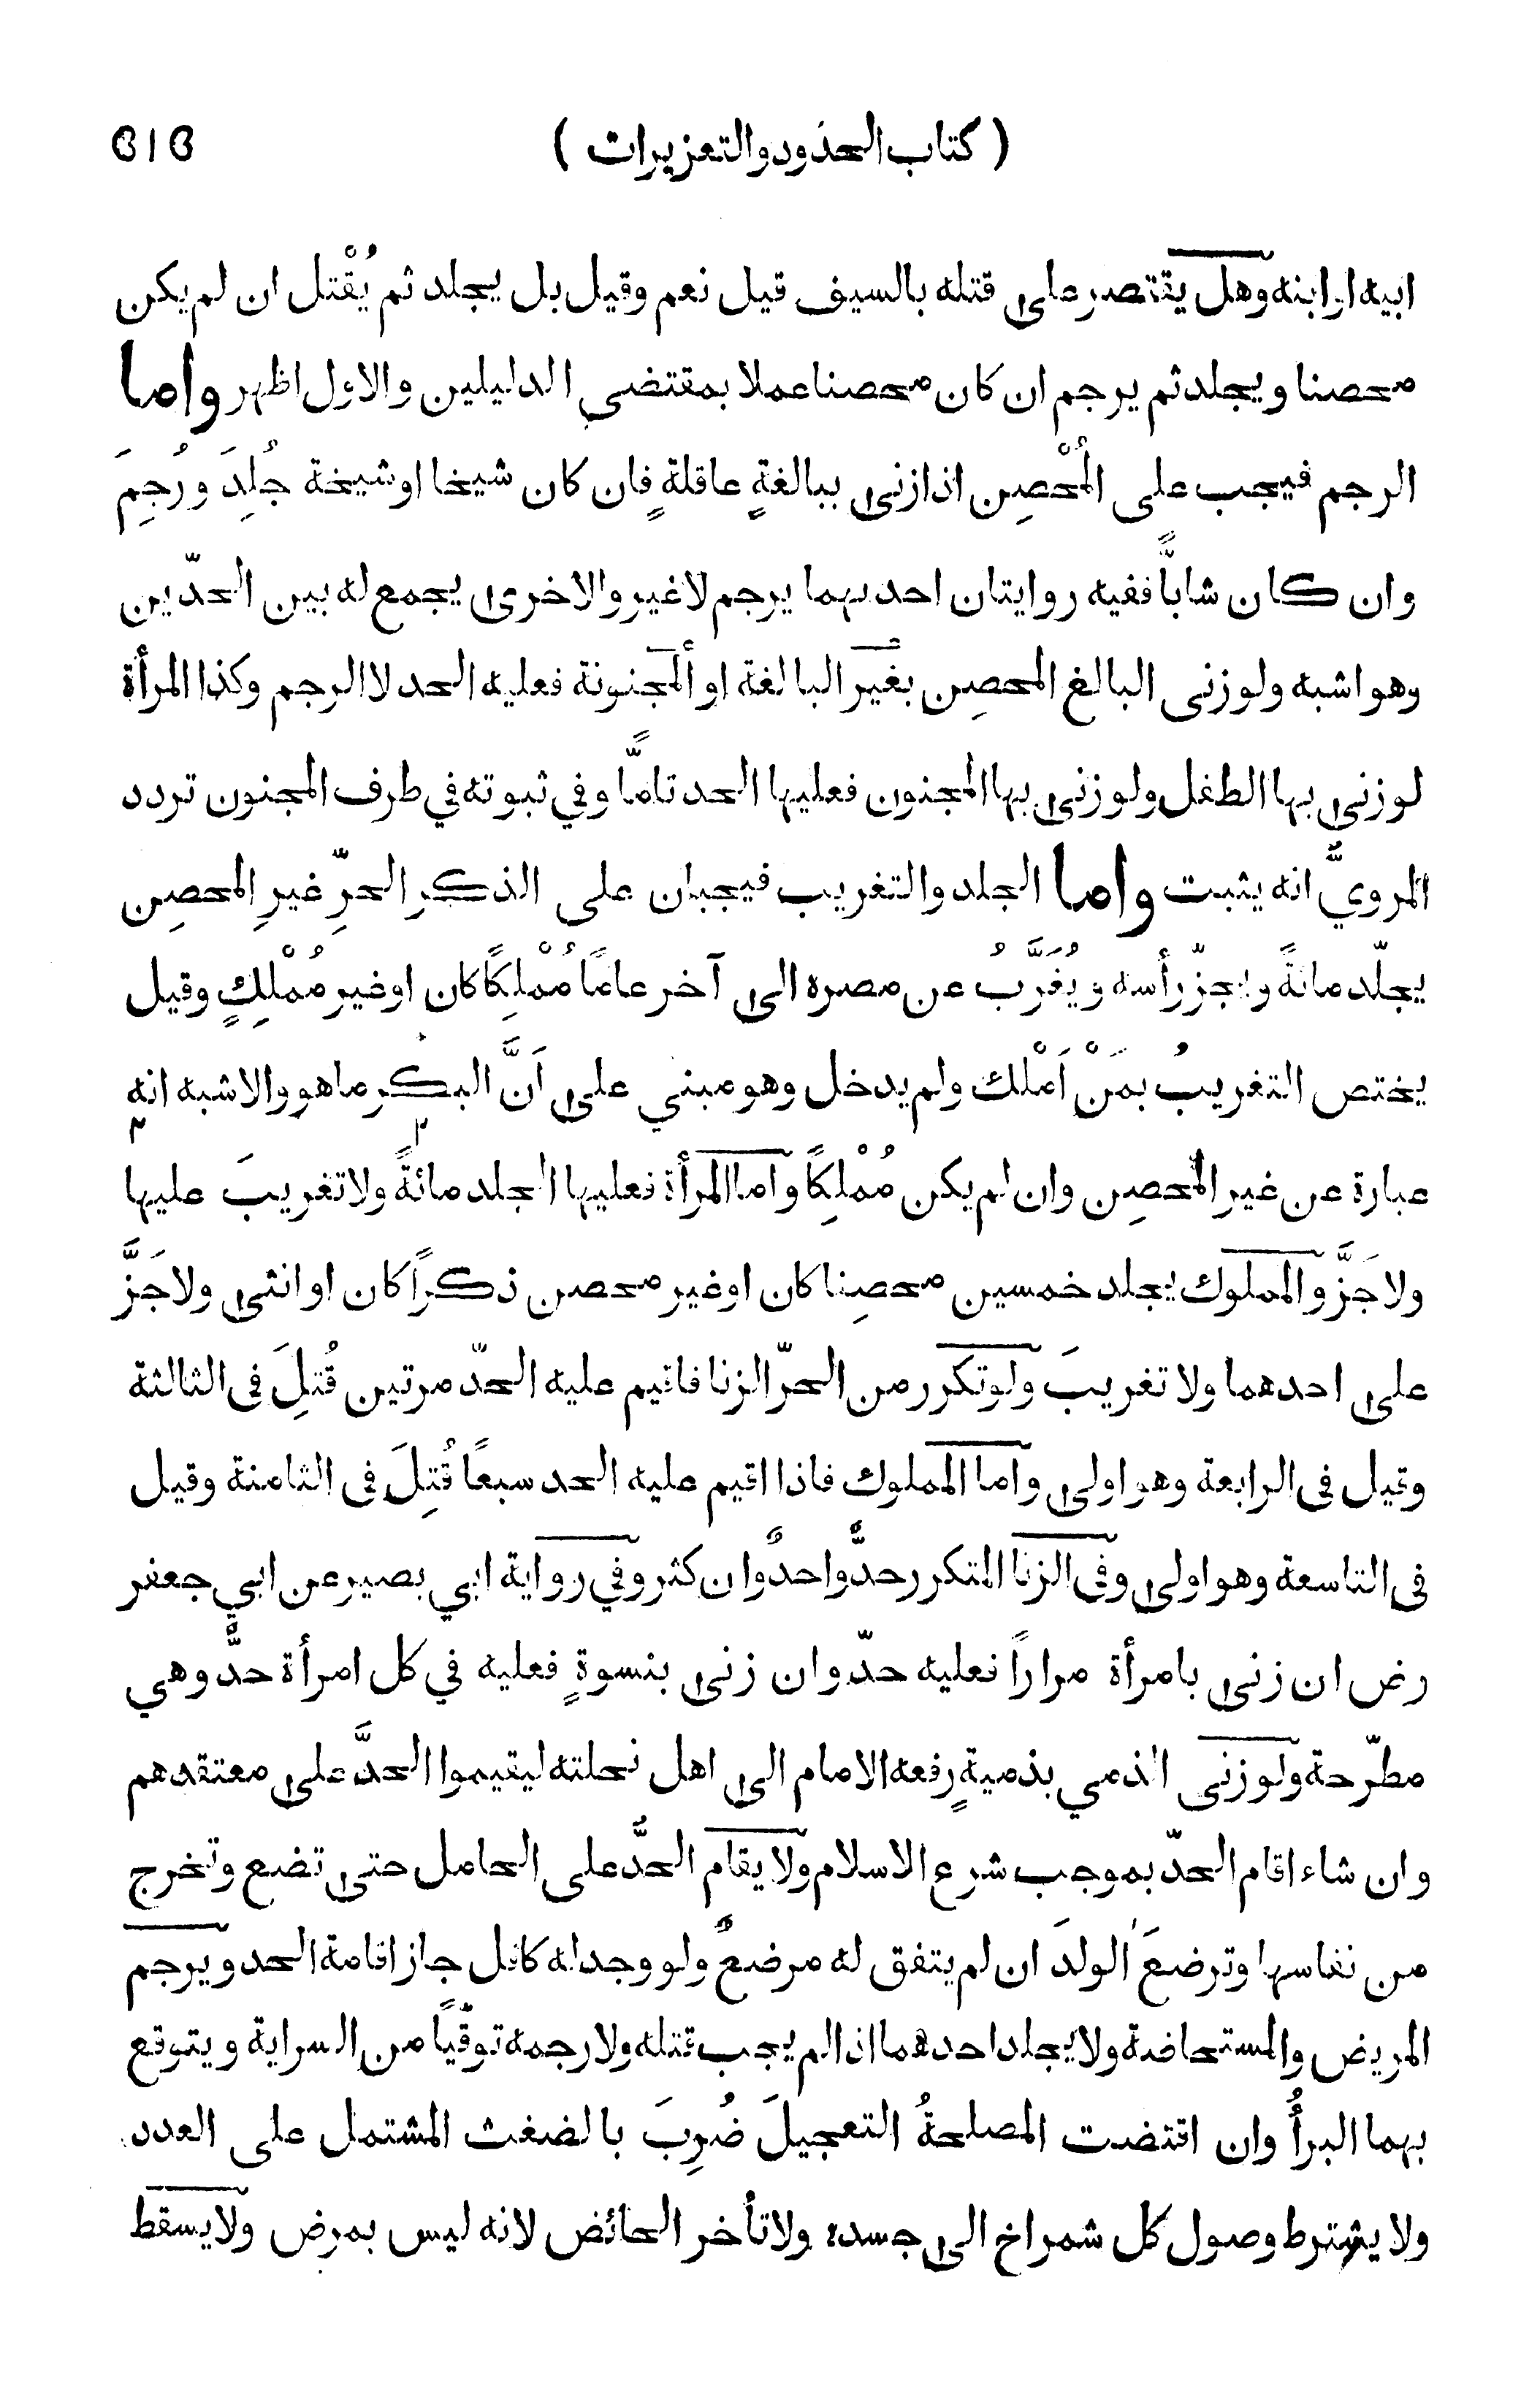 ( كتاب الحدود والتعزيرات ) ٥١٥
ابيه او ابنه وهل يقتصر على قتله بالسيف قيل نعم وقيل بل يجلد ثم يُقْتل ان لم يكن
محصنا ويجلد ثم يرجم ان كان محصنا عملا بمقتضى الدليلين والاول اظهر واما
الرجم فيجب على الُمْحصِن اذا زنى ببالغةٍ عاقلةٍ فان كان شيخا او شيخة جُلِدَ ورُجِمَ
وان كان شابّاً ففيه روايتان احدىهما يرجم لا غير والاخرى يجمع له بين الحدّين
وهو اشبه ولو زنى البالغ المحصِن بغَير البالغة او المجنونة فعليه الحد لا الرجم وكذا المرأة
لو زنى بها الطفل ولو زنى بها المجنون فعليها الحد تامّاً وفي ثبوته في طرف المجنون تردد
المرويّ انه يثبت واما الجلد والتغريب فيجبان على الذكرِ الحرِّ غيرِ المحصِن
يجلّد مائةً ويجزّ رأسه ويُغَرَّبُ عن مصره الى آخر عامًا مُمْلِكًا كان او غير مُمْلِكٍ وقيل
يختص التغريبُ بمَنْ اَمْلك ولم يدخل وهو مبني على اَنَّ البكر ما هو والاشبه انه
عبارة عن غير المحصِن وان لم يكن مُمْلِكًا واما المرأة فعليها الجلد مائةً ولا تغريبَ عليها
ولا جَزَّ والمملوك يجلد خمسين محصِنا كان او غير محصن ذكرًا كان او انثى ولا جَزَّ
على احدهما ولا تغريبَ ولو تكرر من الحرّ الزنا فاقيم عليه الحدّ مرتين قُتلِ في الثالثة
وقيل في الرابعة وهو اولى واما المملوك فاذا اقيم عليه الحد سبعًا قُتِلَ في الثامنة وقيل
في التاسعة وهو اولى وفى الزنا المتكرر حدٌّ واحدٌ وان كثر وفي رواية ابي بصير عن ابي جعفر
رض ان زنى بامرأة مرارًا فعليه حدّ وان زنى بنسوةٍ فعليه في كل امرأة حدٌّ وهي
مطّرحة ولو زنى الذمي بذميةٍ رفعه الامام الى اهل نحلته ليقيموا الحدَّ على معتقدهم
وان شاء اقام الحدّ بموجب شرع الاسلام ولا يقام الحدُّ على الحامل حتى تضع وتخرج
من نفاسها وترضعَ الولدَ ان لم يتفق له مرضعٌ ولو وجد له كافل جاز اقامة الحد ويرجم
المريض والمستحاضة ولا يجلد احدهما اذا لم يجب قتله ولا رجمه توقّياً من السراية ويتوقع
بهما البرأُ وان اقتضت المصلحةُ التعجيلَ ضُرِبَ بالضغث المشتمل على العدد
ولا يشترط وصول كل شمراخ الى جسده ولا تأخر الحائض لانه ليس بمرض ولا يسقط